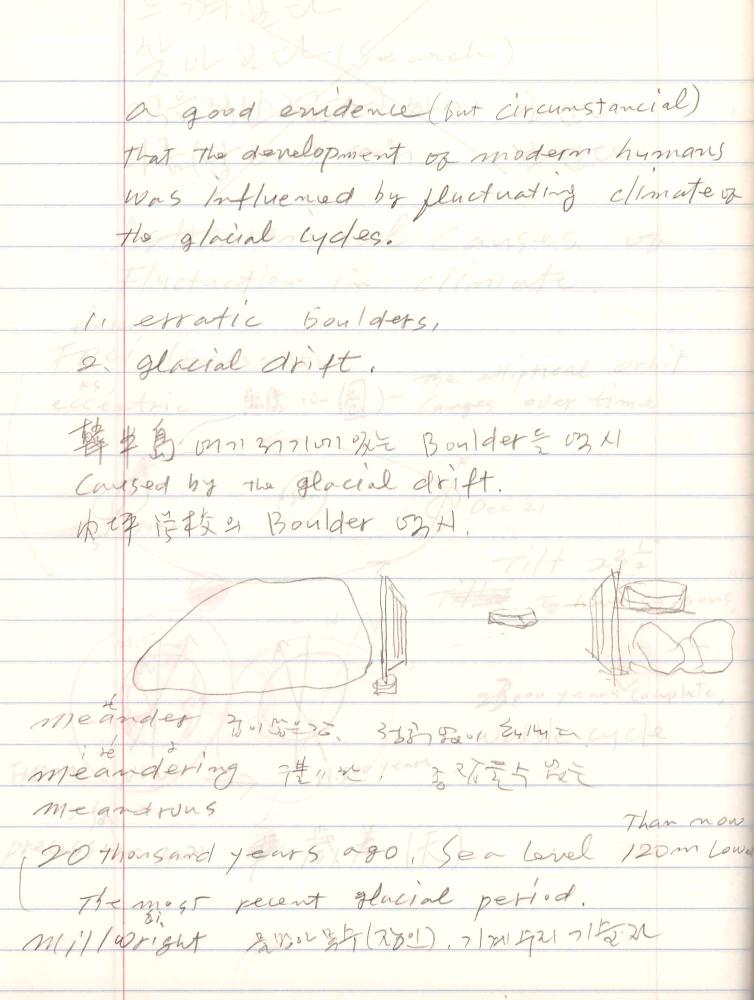 a good evidence (but circumstancial)
that the development of modern humans
was influenced by fluctuating climate of
the glacial cycles.
1. erratic boulders,
2. glacial drift.
韓半島 여기 저기에 있는 Boulder들 역시
Caused by the glacial drift.
内坪学校의 Boulder 역시.
meander 없이
meandering 없는
meandrous
Than now
20 thousand years ago. Sea Level 120m Lower
The most recent glacial period.
Millwright 물방아 목수(장인). 기계수리 기술자